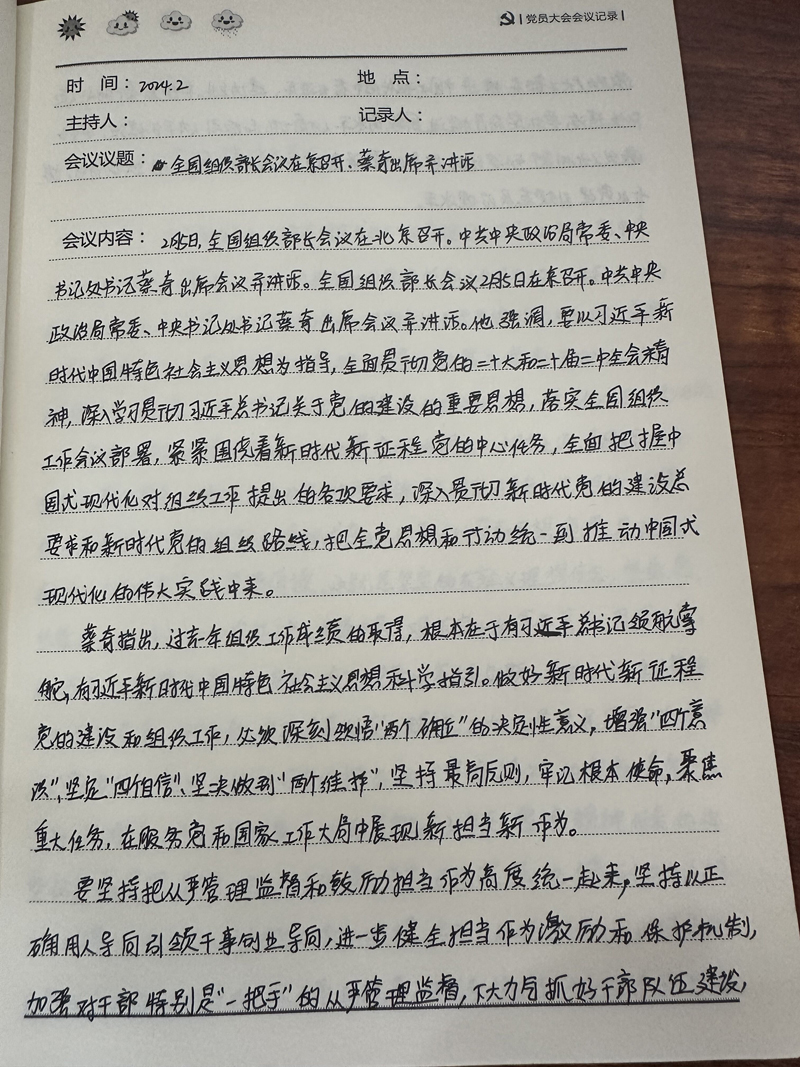 党员大会会议记录
时 间：2024.2 地 点：
主持人： 记录人：
会议议题：全国组织部长会议在京召开、蔡奇出席并讲话
会议内容：2月5日，全国组织部长会议在北京召开。中共中央政治局常委、中央
书记处书记蔡奇出席会议并讲话。全国组织部长会议2月5日在京召开。中共中央
政治局常委、中央书记处书记蔡奇出席会议并讲话。他强调，要以习近平新
时代中国特色社会主义思想为指导，全面贯彻党的二十大和二十届二中全会精
神，深入学习贯彻习近平总书记关于党的建设的重要思想，落实全国组织
工作会议部署，紧紧围绕着新时代新征程党的中心任务，全面把握中
国式现代化对组织工作提出的各项要求，深入贯彻新时代党的建设总
要求和新时代党的组织路线，把全党思想和行动统一到推动中国式
现代化的伟大实践中来。
蔡奇指出，过去一年组织工作成绩的取得，根本在于有习近平总书记领航掌
舵，有习近平新时代中国特色社会主义思想科学指引。做好新时代新征程
党的建设和组织工作，必须深刻领悟“两个确立”的决定性意义，增强“四个意
识”，坚定“四个自信”、坚决做到“两个维护”，坚持最高原则，牢记根本使命，聚焦
重大任务，在服务党和国家工作大局中展现新担当新作为。
要坚持把从严管理监督和鼓励担当作为高度统一起来，坚持以正
确用人导向引领干事创业导向，进一步健全担当作为激励和保护机制，
加强对干部特别是“一把手”的从严管理监督，下大力气抓好干部队伍建设，